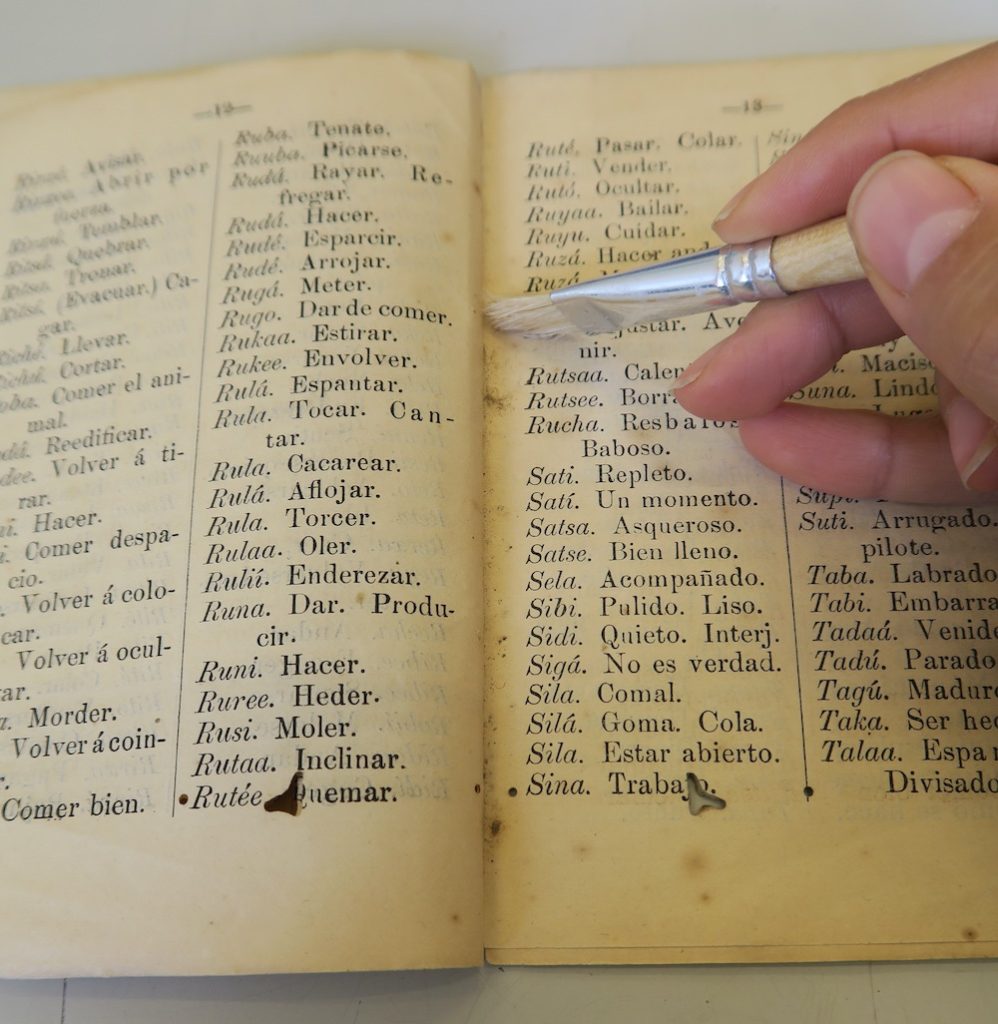 —12—
Avisar.
Abrir por
fuerza.
Tumblar.
Quebrar.
Tronar.
(Evacuar.) Ca-
gar.
Llevar.
Cortar.
Comer el ani-
mal.
Reedificar.
Volver á ti-
rar.
Hacer.
Comer despa-
cio.
Volver á colo-
car.
Volver á ocul-
Morder.
Volver á coin-
Comer bien.
Ruba. Tenate.
Ruuba. Picarse.
Rudá. Rayar. Re-
fregar.
Rudá. Hacer.
Rudé. Esparcir.
Rudé. Arrojar.
Rugá. Meter.
Rugo. Dar de comer.
Rukaa. Estirar.
Rukee. Envolver.
Rulá. Espantar.
Rula. Tocar. Can-
tar.
Rula. Cacarear.
Rulá. Aflojar.
Rula. Torcer.
Rulaa. Oler.
Rulií. Enderezar.
Runa. Dar. Produ-
cir.
Runi. Hacer.
Ruree. Heder.
Rusi. Moler.
Rutaa. Inclinar.
Rutée. Quemar.
—13—
Ruté. Pasar. Colar.
Ruti. Vender.
Rutó. Ocultar.
Ruyaa. Bailar.
Ruyu. Cuidar.
Ruzá. Hacer
Ruzá.
nir.
Rutsaa.
Rutsee.
Rucha.
Baboso.
Sati. Repleto.
Satí. Un momento.
Satsa. Asqueroso.
Satse. Bien lleno.
Sela. Acompañado.
Sibi. Pulido. Liso.
Sidi. Quieto. Interj.
Sigá. No es verdad.
Sila. Comal.
Silá. Goma. Cola.
Sila. Estar abierto.
Sina. Trabajo.
Suna.
Suti. Arrugado.
pilote.
Taba. Labrado
Tabi.
Tadaá.
Tadú. Parado
Tagú.
Taka. Ser
Talaa.